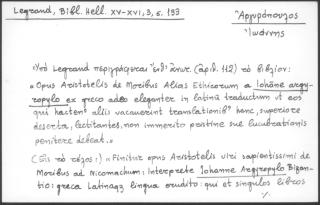 Legrand, Bibl. Hell. XV-XVI, 3, σ. 193
Ἀργυρόπουλος
Ἰωάννης
Ὁ Legrand περιγράφει (ἀριθ. 112) τὸ βιβλίον:
«Opus Aristotelis de Moribus Alias Ethicorum a Iohāne argy-
ropylo ex greco adeo eleganter in latinū traductum ut eos
qui hacten' aliis vacauerint translationib' hanc, superiore
deserta, lectitantes, non immerito pristine sue lucubrationis
penitere debeat.»
(Εἰς τὸ τέλος:) «Finitur opus Aristotelis viri sapientissimi de
Moribus ad Nicomachum; interprete Iohanne Argyropylo Bizan-
tio: greca Latinaqz lingua erudito: qui et singulos libros
%.